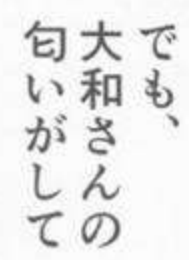 でも、
大和さんの
匂いがして